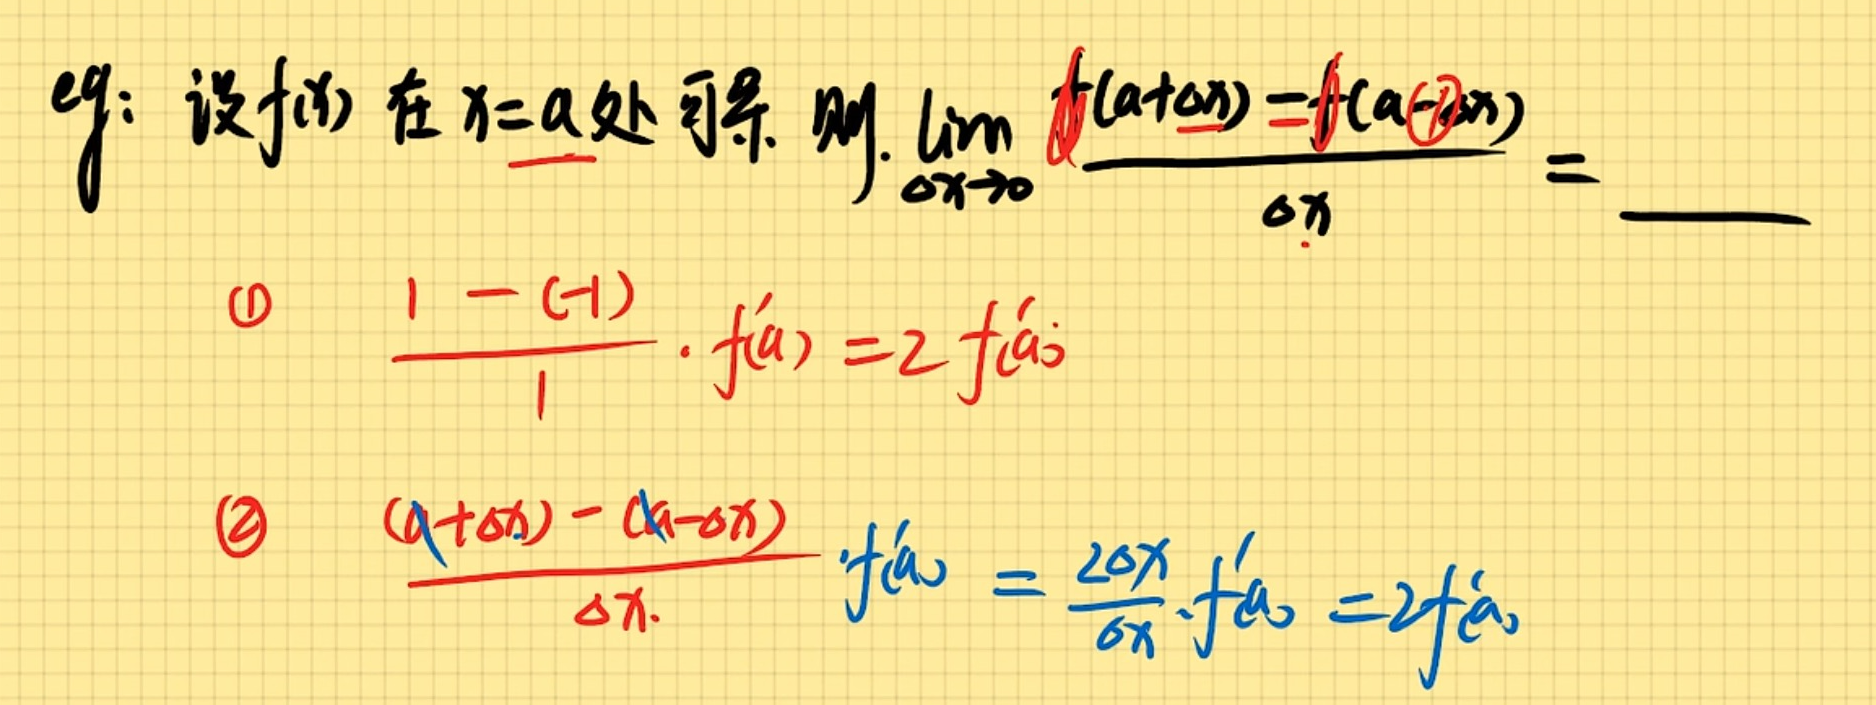 eg: 设f(x) 在 x=a处 可导. 则. lim_{Δx→0} \frac{f(a+Δx)-f(a-Δx)}{Δx} = ____
① \frac{1-(-1)}{1} · f'(a) = 2 f'(a)
② \frac{(a+Δx)-(a-Δx)}{Δx.} · f'(a) = \frac{2Δx}{Δx} · f'(a) = 2f'(a)